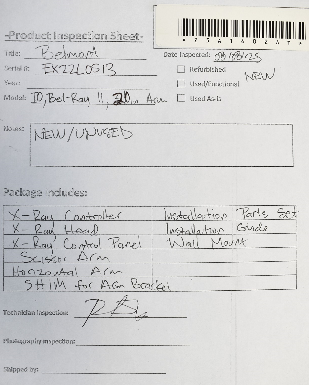 -Product Inspection Sheet-
Title: Belmont
Date Inspected:
Serial #: EX22L0513
Refurbished
NEW
Year:
Used/Functional
Model: Bel-Ray II, Arm
Used As-Is
Notes:
NEW/UNUSED
Package Includes:
X-Ray Controller Installation Parts Set
X-Ray Head Installation Guide
X-Ray Control Panel Wall Mount
Scissor Arm
Horizontal Arm
SHIM for Arm Bracket
Technician Inspection:
Photography Inspection:
Shipped by: